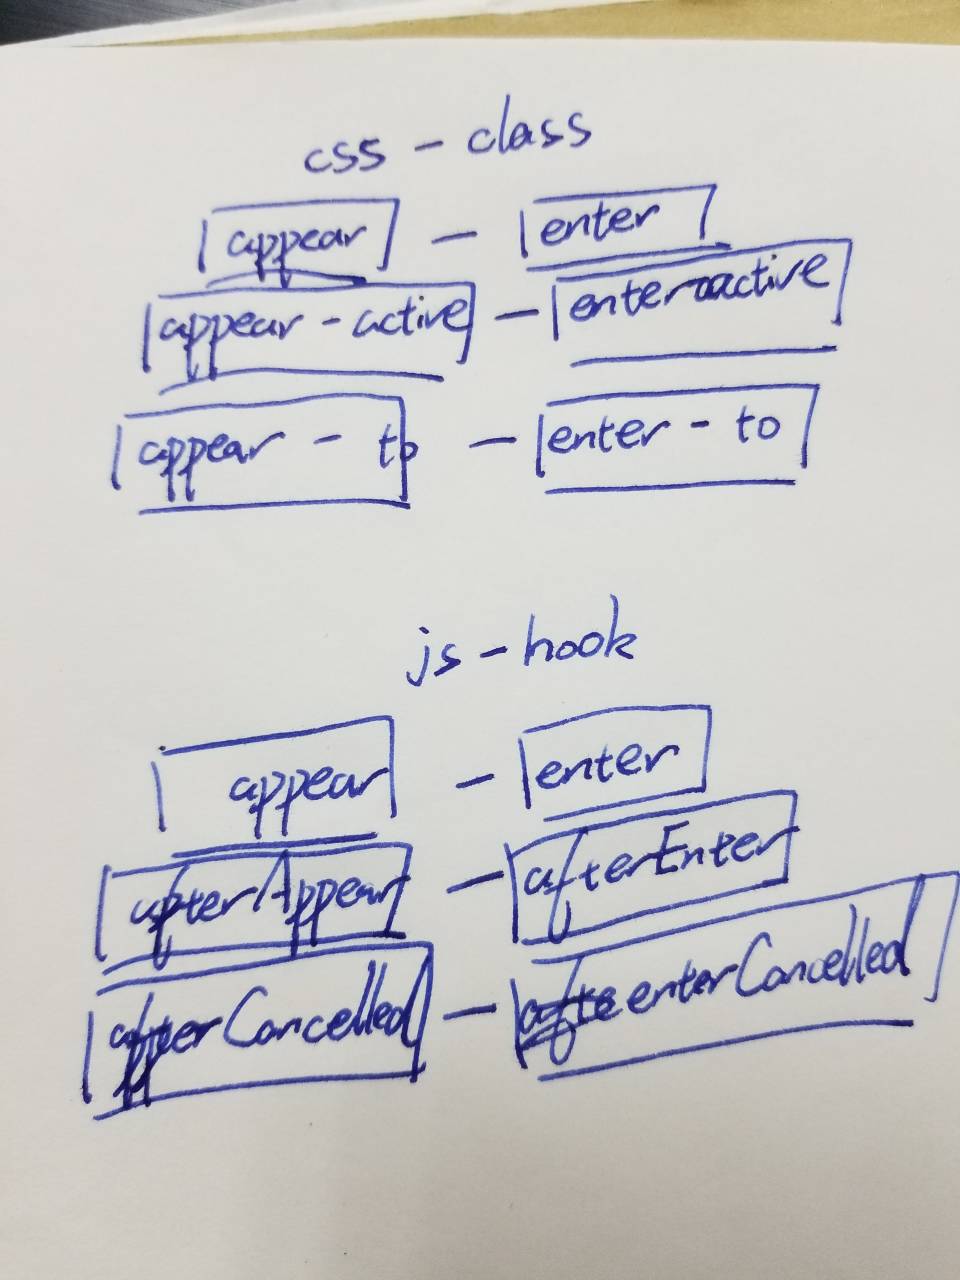 css - class
appear - enter
appear - active - enter active
appear - to - enter - to
js - hook
appear - enter
afterAppear - afterEnter
Cancelled - enterCancelled